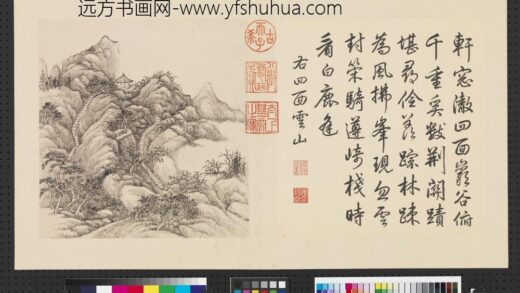 远方书画网-www.yfshuhua.com
軒窓敞四面巖谷俯
千重奚數荊關蹟
堪尋踪林踈
為風拂峯現忽雲
封策騎遵崎棧時
看白鹿逢
右四面雲山
古希天子